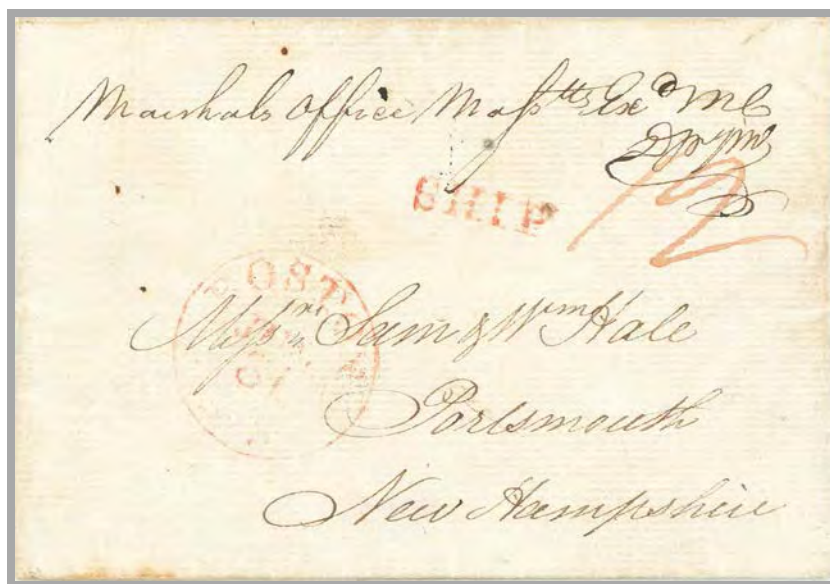 Marshals Office Masstts Exd
SHIP
12
BOSTON
Messrs Sam & Wm Hale
Portsmouth
New Hampshire